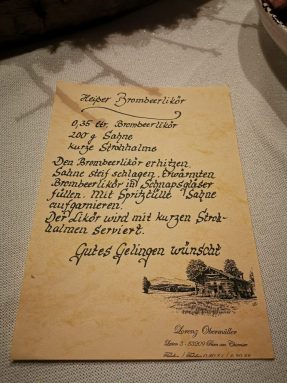 Heißer Brombeerlikör
0,35 Ltr. Brombeerlikör
200 g Sahne
kurze Strohhalme
Den Brombeerlikör erhitzen.
Sahne steif schlagen. Erwärmten
Brombeerlikör in Schnapsgläser
füllen. Mit Spritztülle Sahne
aufgarnieren.
Der Likör wird mit kurzen Stroh-
halmen serviert.
Gutes Gelingen wünscht
Lorenz Obermüller
83209 Prien am Chiemsee